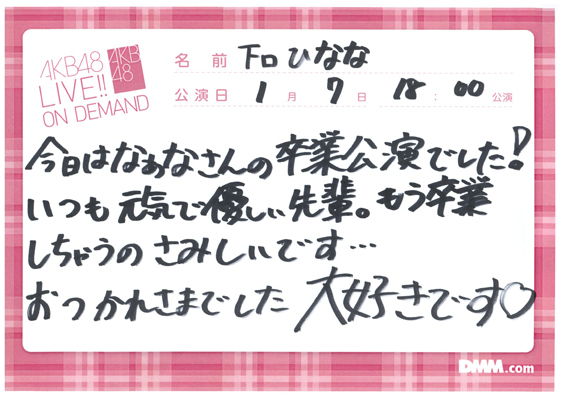 AKB48
LIVE!!
ON DEMAND
AKB
48
名前 下口ひなな
公演日 1月7日 18:00公演
今日はなぁなさんの卒業公演でした!
いつも元気で優しい先輩。もう卒業
しちゃうのさみしいです…
おつかれさまでした 大好きです♡
DMM.com